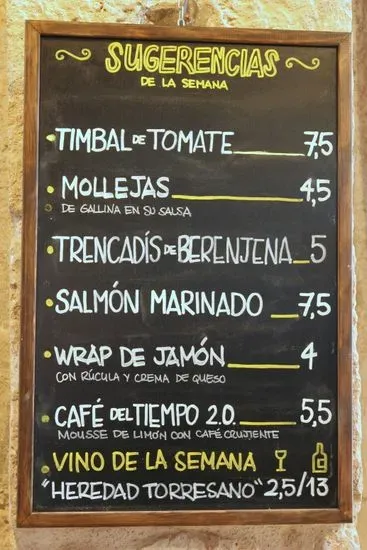 SUGERENCIAS
DE LA SEMANA
TIMBAL DE TOMATE 7,5
MOLLEJAS 4,5
DE GALLINA EN SU SALSA
TRENCADÍS DE BERENJENA 5
SALMÓN MARINADO 7,5
WRAP DE JAMÓN 4
CON RÚCULA Y CREMA DE QUESO
CAFÉ DEL TIEMPO 2.0. 5,5
MOUSSE DE LIMÓN CON CAFÉ CRUJIENTE
VINO DE LA SEMANA
"HEREDAD TORRESANO" 2,5/13